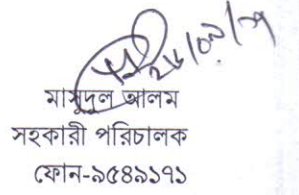 ২৮/০৯/১৭
মাসুদুল আলম
সহকারী পরিচালক
ফোন-৯৫৪৯১৭১